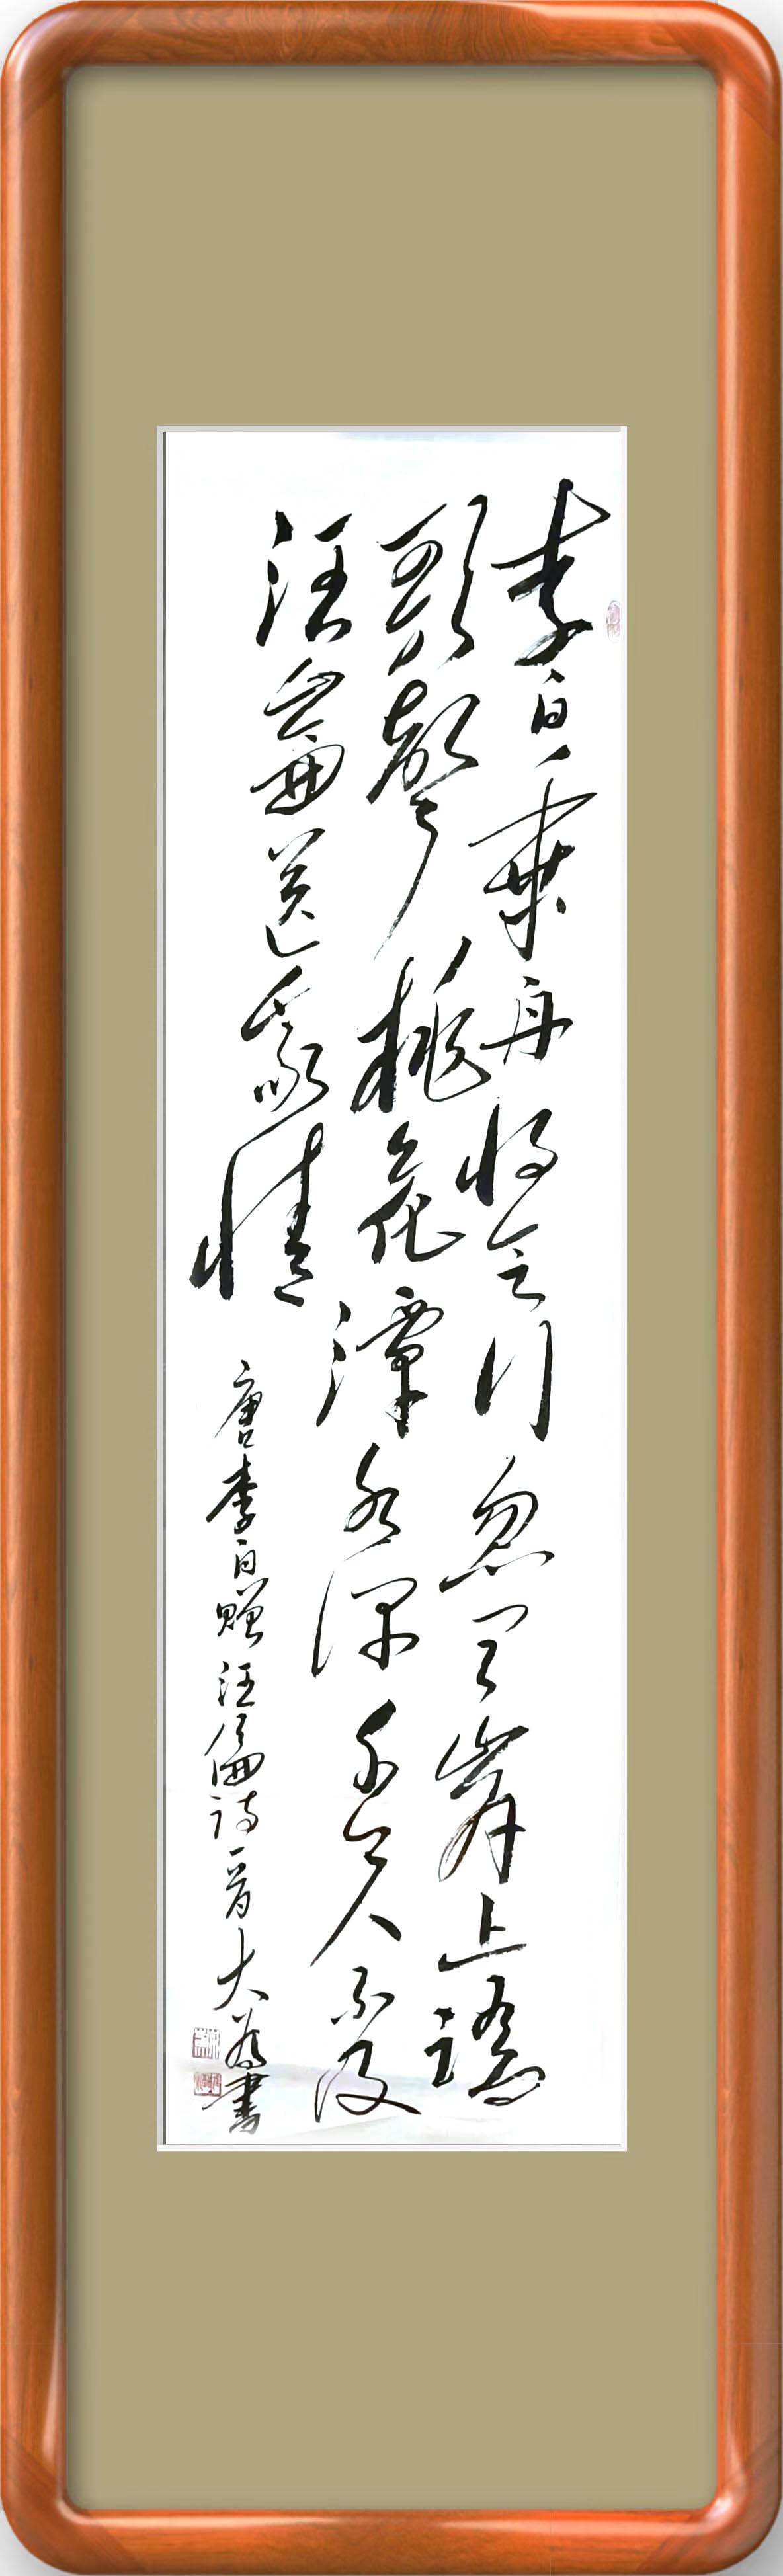 李白乘舟将欲行忽闻岸上踏
歌聲桃花潭水深千尺不及
汪倫送我情
唐李白贈汪倫詩一首大為書